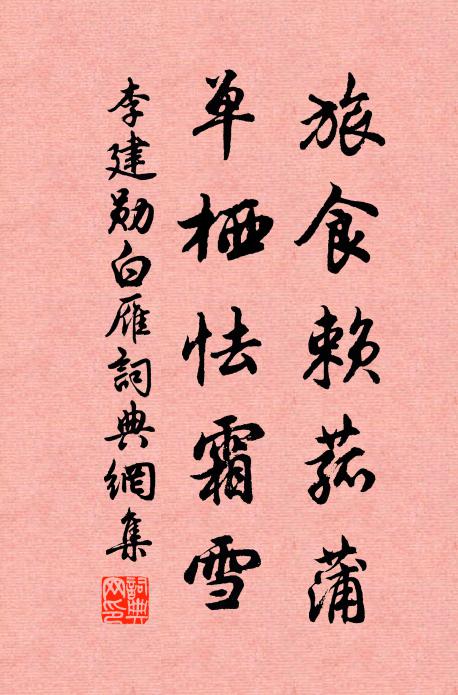 旅食賴菰蒲
单栖怯霜雪
李建勋白雁詞典網集
詞典网印